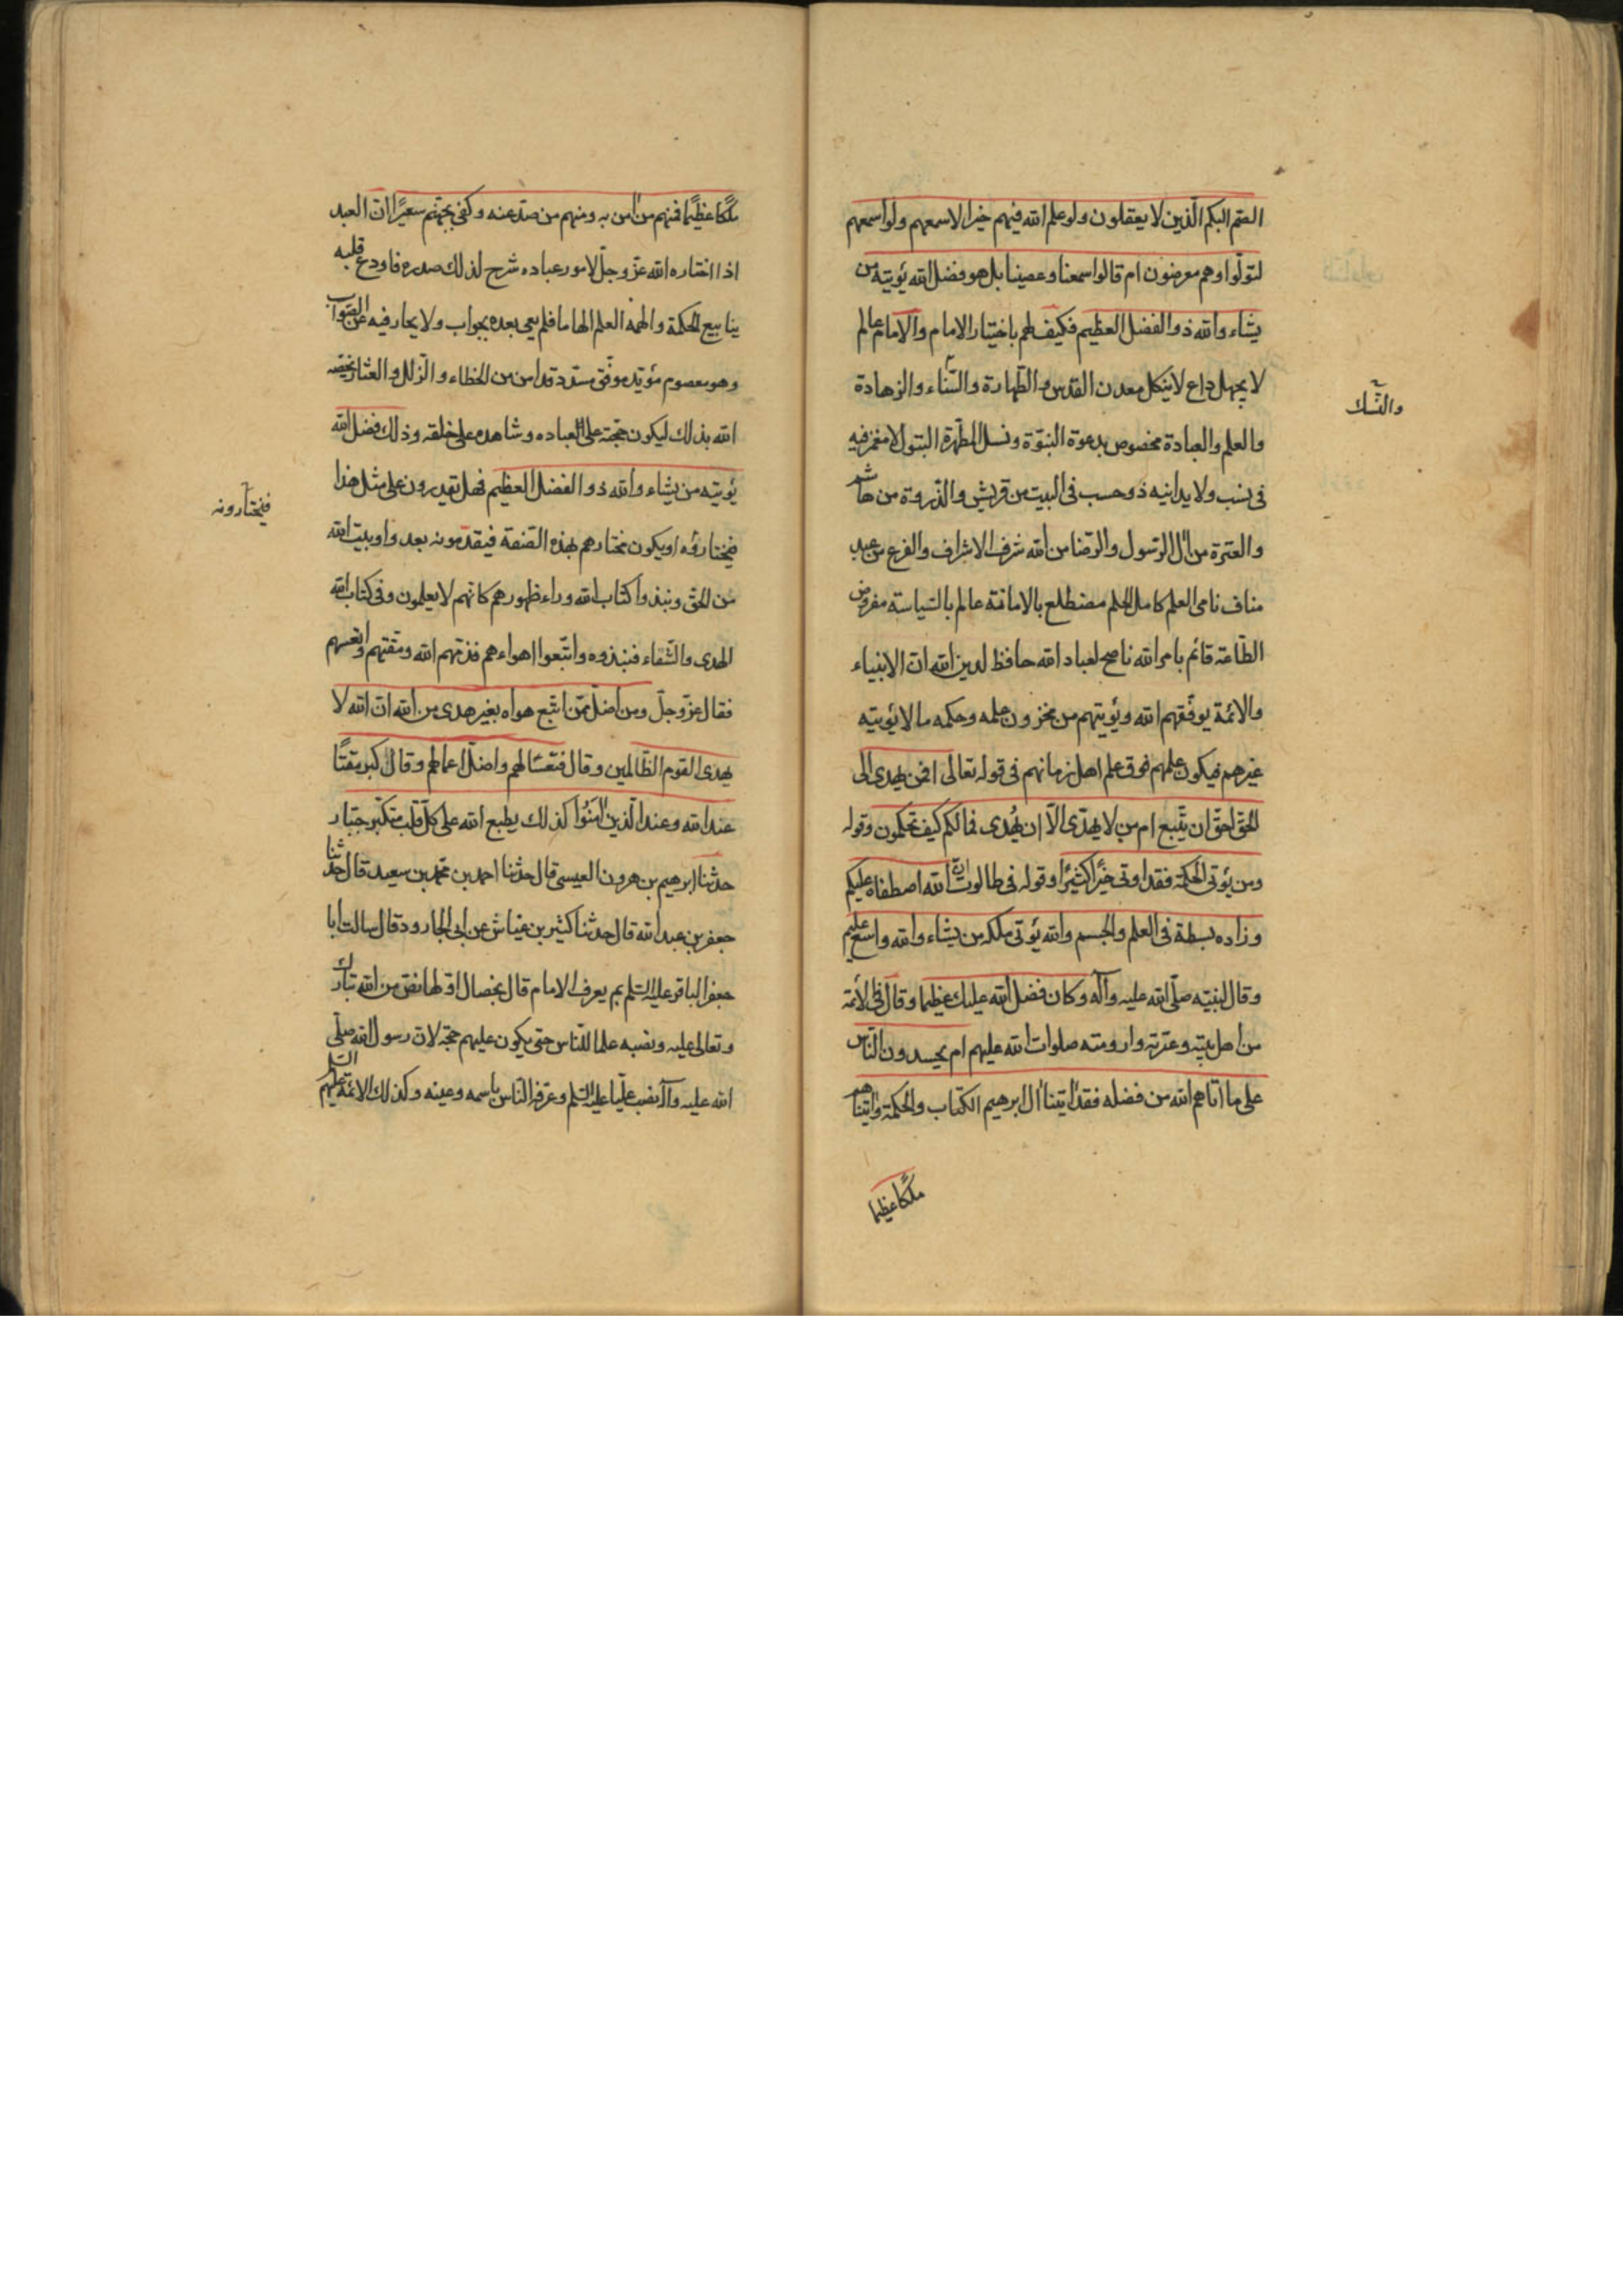 الصّم البكم الّذين لا يعقلون ولو علم الله فيهم خيرا لاسمعهم ولو اسمعهم
لتولّوا وهم معرضون ام قالوا سمعنا وعصينا بل هو فضل الله يؤيته من
يشاء والله ذو الفضل العظيم فكيف لهم باختيار الامام والامام عالم
لا يجهل داع لا ينكل معدن القدس والطّهارة والسّناء والزهادة
والنّسك
والعلم والعبادة مخصوص بدعوة النبوّة ونسل المطّهرة البتول لا مغمز فيه
فى نسب ولا يدانيه ذو حسب فى البيت من قريش والذّروة من هاشم
والعترة من آل الرّسول والرّضا من الله شرف الاشراف والفرع من عبد
مناف نامى العلم كامل الحلم مضطلع بالامامة عالم بالسّياسة مفروض
الطّاعة قائم بامر الله ناصح لعباد الله حافظ لدين الله انّ الانبياء
والائمة يوفّقهم الله ويؤيتهم من مخزون علمه وحكمه ما لا يؤيتيه
غيرهم فيكون علمهم فوق علم اهل زمانهم فى قوله تعالى افمن يهدى الى
الحقّ احقّ ان يتّبع ام من لا يهدّى الّا ان يُهدى فما لكم كيف تحكمون وقوله
ومن يؤتى الحكمة فقد اوتى خيرًا كثيرًا وقوله فى طالوت انّ الله اصطفاه عليكم
وزاده بسطة فى العلم والجسم والله يؤتى ملكه من يشاء والله واسع عليم
وقال لنبيّه صلّى الله عليه وآله وكان فضل الله عليك عظيما وقال فى الائمّة
من اهل بيته وعترته وارومته صلوات الله عليهم ام يحسدون النّاس
على ما اتاهم الله من فضله فقد اتينا آل ابرهيم الكتاب والحكمة واتيناهم
ملكًا عظيما
ملكًا عظيمًا فمنهم من امن به ومنهم من صدّ عنه وكفى بجهنّم سعيرًا انّ العبد
اذا اختاره الله عزّ وجلّ لامور عباده شرح لذلك صدره فاودع قلبه
ينابيع الحكمة والهمه العلم الهاما فلم يعى بعده بجواب ولا يحار فيه عن الصّواب
وهو معصوم مؤيّد موفّق مسدّد قد امن من الخطاء والزّلل والعثار يخصّه
الله بذلك ليكون حجّة على العباده وشاهده على خلقه وذلك فضل الله
يؤيته من يشاء والله ذو الفضل العظيم فهل يقدرون على مثل هذا
فيختارونه
فيختاروه او يكون مختارهم بهذه الصّفة فيقدّمونه بعدوا وبيت الله
من الحقّ ونبذوا كتاب الله وراء ظهورهم كانّهم لا يعلمون وفى كتاب الله
الهدى والشّفاء فنبذوه واتّبعوا اهواءهم فذمّهم الله ومقّتهم وانعسهم
فقال عزّ وجلّ ومن اضلّ ممّن اتّبع هواه بغير هدى من الله انّ الله لا
يهدى القوم الظّالمين وقال فتعسًا لهم واضلّ اعمالهم وقال كبر مقتًا
عند الله وعند الّذين امَنُوا كذلك يطبع الله على كلّ قلب متكبّر جبّار
حدّثنا ابرهيم بن هرون العيسى قال حدّثنا احمد بن محمّد بن سعيد قال حدّثنا
جعفر بن عبد الله قال حدّثنا كثير بن عيّاش عن ابى الجارود قال سالت ابا
جعفر الباقر عليه السّلم بم يعرف الامام قال بخصال اوّلها نصّ من الله تبارك
وتعالى عليه ونصبه علما للنّاس حتّى يكون عليهم حجّة لانّ رسول الله صلّى
الله عليه وآله نصب عليّا عليه السّلم وعرّفه النّاس باسمه وعينه وكذلك الائمّة عليهم السّلم